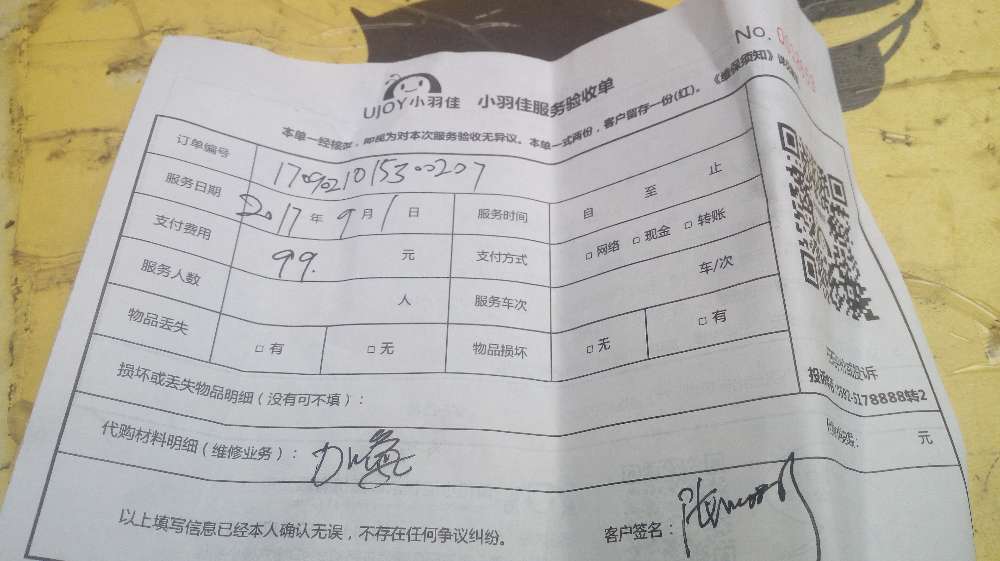 No.
UJOY小羽佳 小羽佳服务验收单
本单一经接受，即视为对本次服务验收无异议。本单一式两份，客户留存一份(红)。《维保须知》
订单编号 170921015300207
服务日期 2017年9月1日 服务时间 自 至 止
支付费用 99. 元 支付方式 □ 网络 □ 现金 □ 转账
服务人数 人 服务车次 车/次
物品丢失 □ 有 □ 无 物品损坏 □ 无 □ 有
损坏或丢失物品明细（没有可不填）：
5178888转2
代购材料明细（维修业务）： 元
以上填写信息已经本人确认无误，不存在任何争议纠纷。 客户签名：